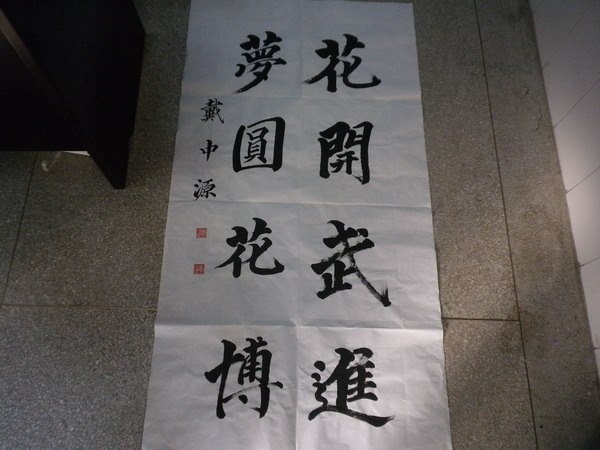 花開武進
夢圓花博
戴中源